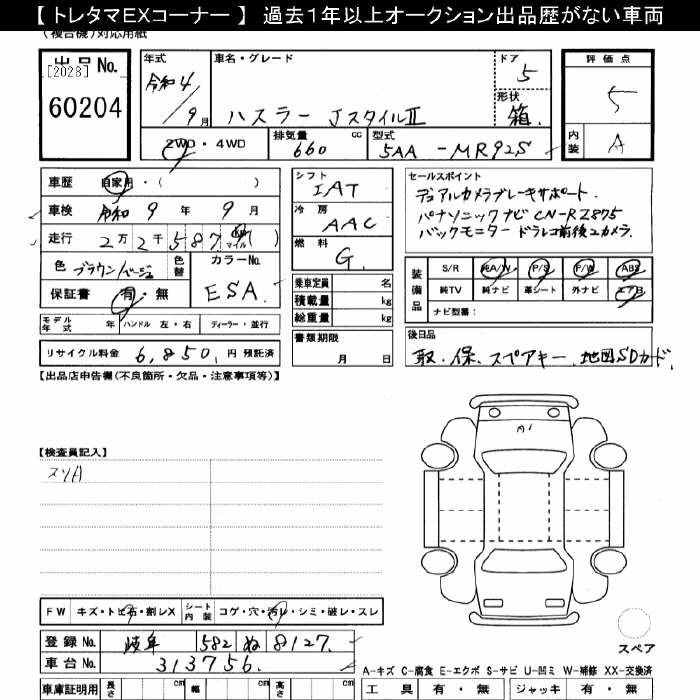 【 トレタマEXコーナー 】 過去1年以上オークション出品歴がない車両
(複合機)対応用紙
出品No.
[2028]
60204
年式
令和4/9月
車名・グレード
ハスラー JスタイルⅡ
ドア
5
形状
箱.
評価点
5
内装
A
2WD・4WD
排気量 cc
660
型式
5AA -MR92S
車歴 自家用・( )
車検 令和 9 年 9 月
走行 2万 2千 587 km マイル ( )
色 ブラウン/ベージュ
色替
カラーNo.
ESA.
保証書 有・無
シフト
IAT
冷房
AAC
燃料
G.
乗車定員 名
積載量 kg
総重量 kg
書類期限
月 日
セールスポイント
デュアルカメラブレーキサポート.
パナソニックナビ CN-RZ875
バックモニター ドラレコ前後2カメラ.
装備品
S/R 純A/W P/S P/W ABS
純TV 純ナビ 革シート 外ナビ エアB
ナビ型番:
モデル年式 年 ハンドル 左・右 ディーラー・並行
リサイクル料金 6,850. 円 預託済
後日品
取、保、スペアキー、地図SDカード.
【出品店申告欄(不良箇所・欠品・注意事項等)】
A1
【検査員記入】
スソA
FW キズ・トビ石・割レX
シート内装 コゲ・穴・汚レ・シミ・破レ・スレ
登録No. 岐阜 582 ぬ 8127.
車台No. 313756.
スペア
A-キズ C-腐食 E-エクボ S-サビ U-凹ミ W-補修 XX-交換済
車庫証明用 長さ cm 幅 cm 高さ cm
工具 有・無 ジャッキ 有・無